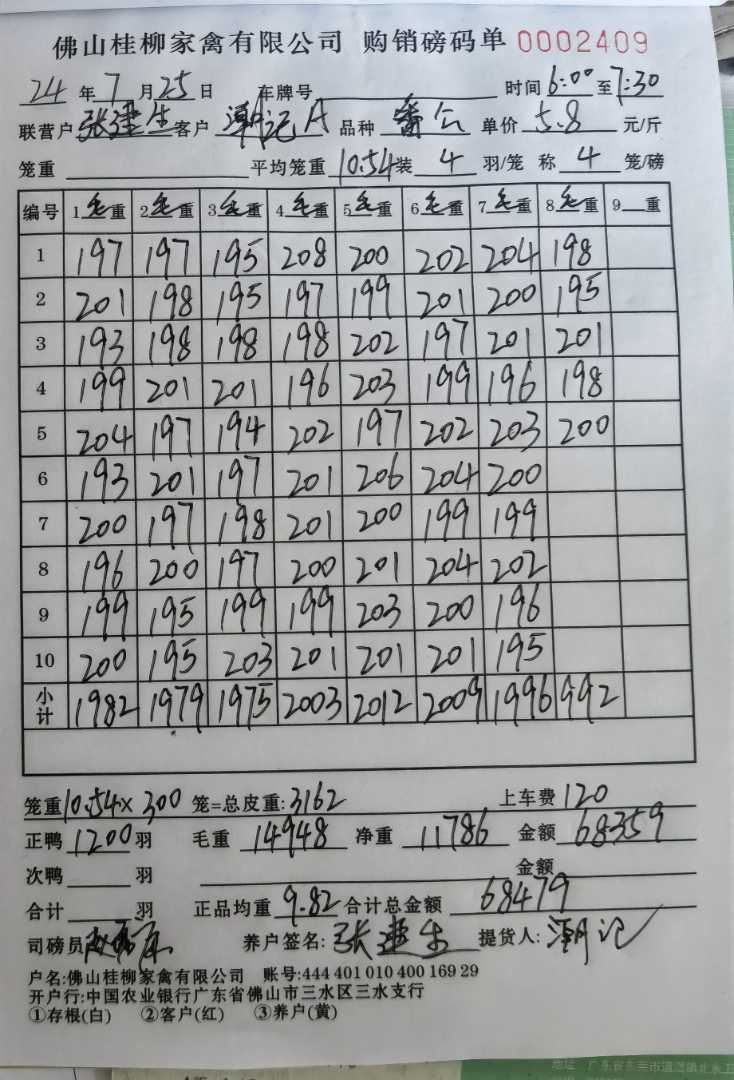 佛山桂柳家禽有限公司 购销磅码单 0002409
24 年 7 月 25 日 车牌号 时间 6:00 至 7:30
联营户 张建生 客户 潮记A 品种 番公 单价 5.8 元/斤
笼重 平均笼重 10.54 装 4 羽/笼 称 4 笼/磅
编号 1毛重 2毛重 3毛重 4毛重 5毛重 6毛重 7毛重 8毛重 9 重
1 197 197 195 208 200 202 204 198
2 201 198 195 197 199 201 200 195
3 193 198 198 198 202 197 201 201
4 199 201 201 196 203 199 196 198
5 204 197 194 202 197 202 203 200
6 193 201 197 201 206 204 200
7 200 197 198 201 200 199 199
8 196 200 197 200 201 204 202
9 199 195 199 199 203 200 196
10 200 195 203 201 201 201 195
小计 1982 1979 1975 2003 2012 2009 1996 992
笼重 10.54 × 300 笼=总皮重: 3162 上车费 120
正鸭 1200 羽 毛重 14948 净重 11786 金额 68359
次鸭 羽 金额
合计 羽 正品均重 9.82 合计总金额 68479
司磅员 养户签名: 张建生 提货人: 潮记
户名:佛山桂柳家禽有限公司 账号:444 401 010 400 169 29
开户行:中国农业银行广东省佛山市三水区三水支行
①存根(白) ②客户(红) ③养户(黄)